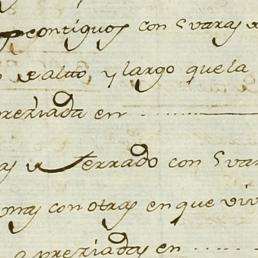 contiguos con 5 varas
de alto, y largo que la
preziada en
Terrado con 5 vara
onas con otras en que viv
apreziadas en